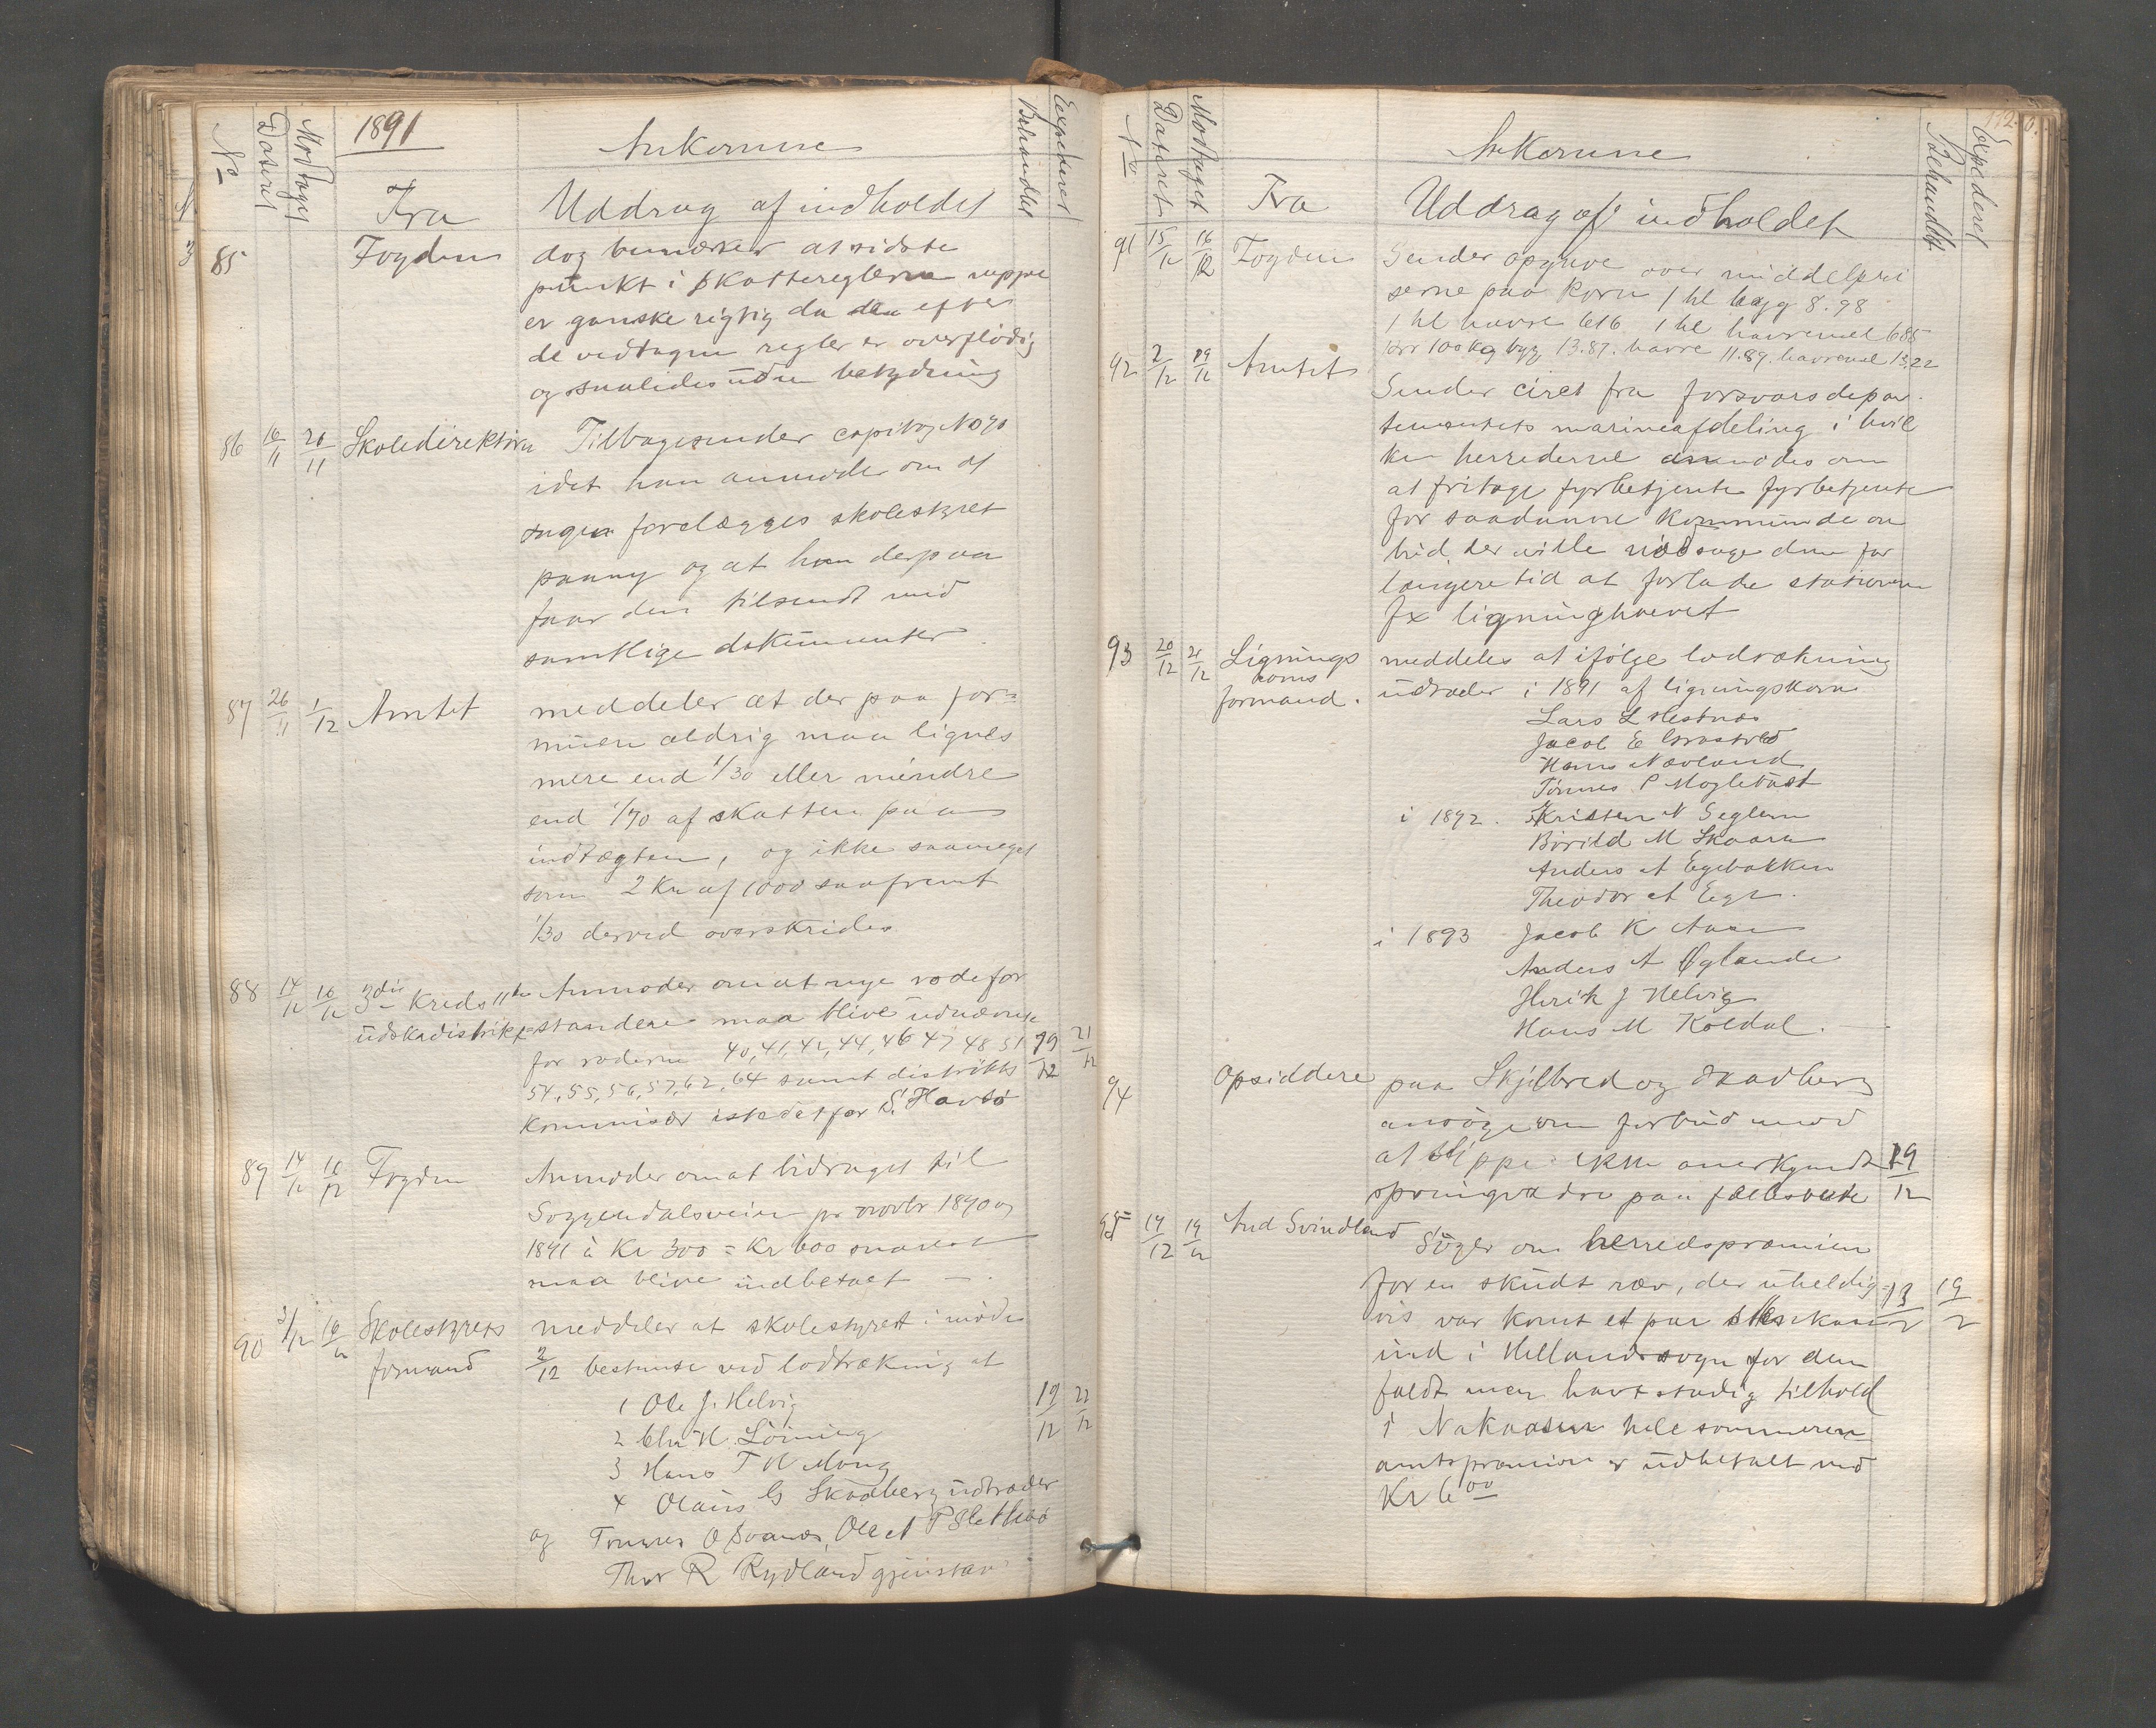 1891
Ankomne
No
Dateret
Modtaget
Fra
Uddrag af indholdet
Behandlet
Expederet
85 Fogden dog bemærker at sidste
punkt i skattereglerne neppe
er ganske rigtig da den efter
de vedtagne regler er overflødig
og saaledes uden betydning
86 16/11 20/11 Skoledirektøren Tilbagesender copibog No 70
idet han anmoder om at
sagen forelægges skolestyret
paany og at han derpaa
faar den tilsendt med
samtlige dokumenter
87 26/11 1/12 Amtet meddeler at der paa for=
muen aldrig maa lignes
mere end 1/30 eller mindre
end 1/70 af skatten paa
indtægten, og ikke saameget
som 2 Kr af 1000 saafremt
1/30 derved overskrides
88 14/12 16/12 3die Kreds 11te Anmoder om at nye rodefor
udskdistrikt= standere maa blive udnævnte
for roderne 40,41,42,44,46 47 48 51 19/12 21/12
54,55,56,57,62,64 samt distrikts
Kommisær istedetfor S. Havsø
89 14/12 16/12 Fogden Anmoder om at bidraget til
Soggendalsveien pr novbr 1890 og
1891 à Kr 300 = Kr 600 snarest
maa blive indbetalt —.
90 3/12 16/12 Skolestyrets meddeler at skolestyret i møde
formand 2/12 bestemte ved lodtrækning at
1 Ole J. Helvig 19/12 22/12
2 Chr H. Löining
3 Hans T H Mong
4 Olaus G Skadberg udtræder
og Tønnes O Svanes, Ole A P Slettebø
Thor R Rydland gjenstaar
Ankomne
No
Dateret
Modtaget
Fra
Uddrag af indholdet
Behandlet
Expederet
91 15/12 16/12 Fogden Sender opgave over middelpri
serne paa Korn 1 hl byg 8.98
1 hl havre 616 1 hl havremel 685
pr 100 kg byg 13.87. havre 11.89. havremel 13.22
92 2/12 19/12 Amtet
Sender circl fra forsvarsdepar.
tementets marineafdeling i hvil
ken herrederne anmodes om
at fritage fyrbetjente fyrbetjente
for saadanne kommunde om
bud der ville nødsage dem for
længere tid at forlade stationen
fx ligninghvervet
93 20/12 21/12 Lignings meddeles at ifølge lodtrækning
koms udtræder i 1891 af ligningskom
formand.
Lars L Hestnes
Jacob E Grastved
Hans Nævland
Tönnes P Mogletvedt
i 1892. Kristen N Seglem
Børild M Skaara
Anders A Egebakken
Theodor A Ege.
i 1893 Jacob K Aase
Anders A Øglænde
Henrik J Helvig
Hans M Koldal.
94 Opsiddere paa Skjelbred og Skadberg
ansøge om forbud mod
at slippe ikke anerkjendt 29/12
springvædre paa fælesbeite
95 17/12 19/12 And Svindland Søger om herredspræmien
for en skudt ræv, der uheldig= 13/2 19/2
vis var komt et par stenkast
ind i Hellandsogn før den
faldt men havt stadig tilhold
i Nakaasen hele sommeren
amtspræmien er udbetalt med
Kr 6 00